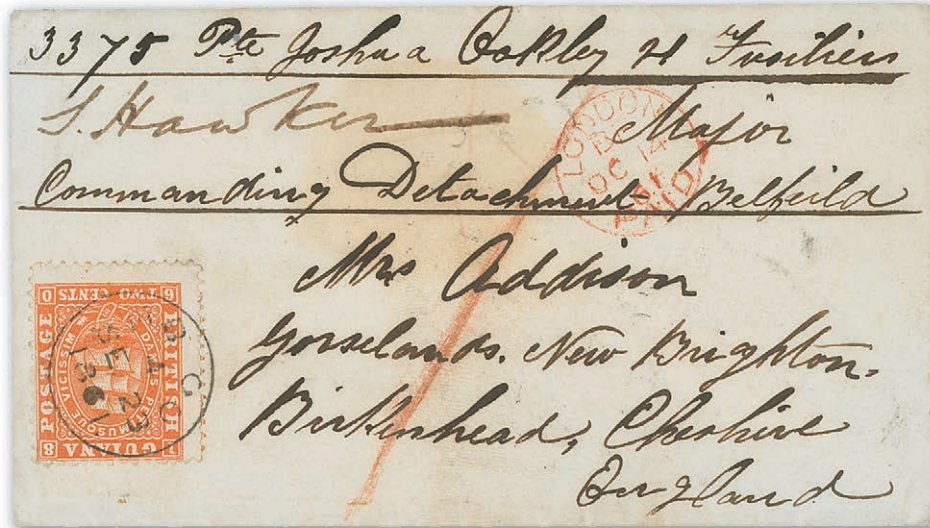 3375 Pte Joshua Oakley 21 Fusiliers
S. Hawker Major
Commanding Detachment Belfeild
LONDON
OC 14
61
PAID
Mrs Addison
Gorselands. New Brighton.
Birkinhead, Cheshire
England
BRITISH GUIANA POSTAGE TWO CENTS
DAMUS PETIMUSQUE VICISSIM
1860
A
SE 23
1861